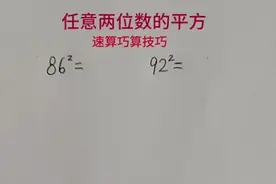 任意两位数的平方
速算巧算技巧
86²= 92²=